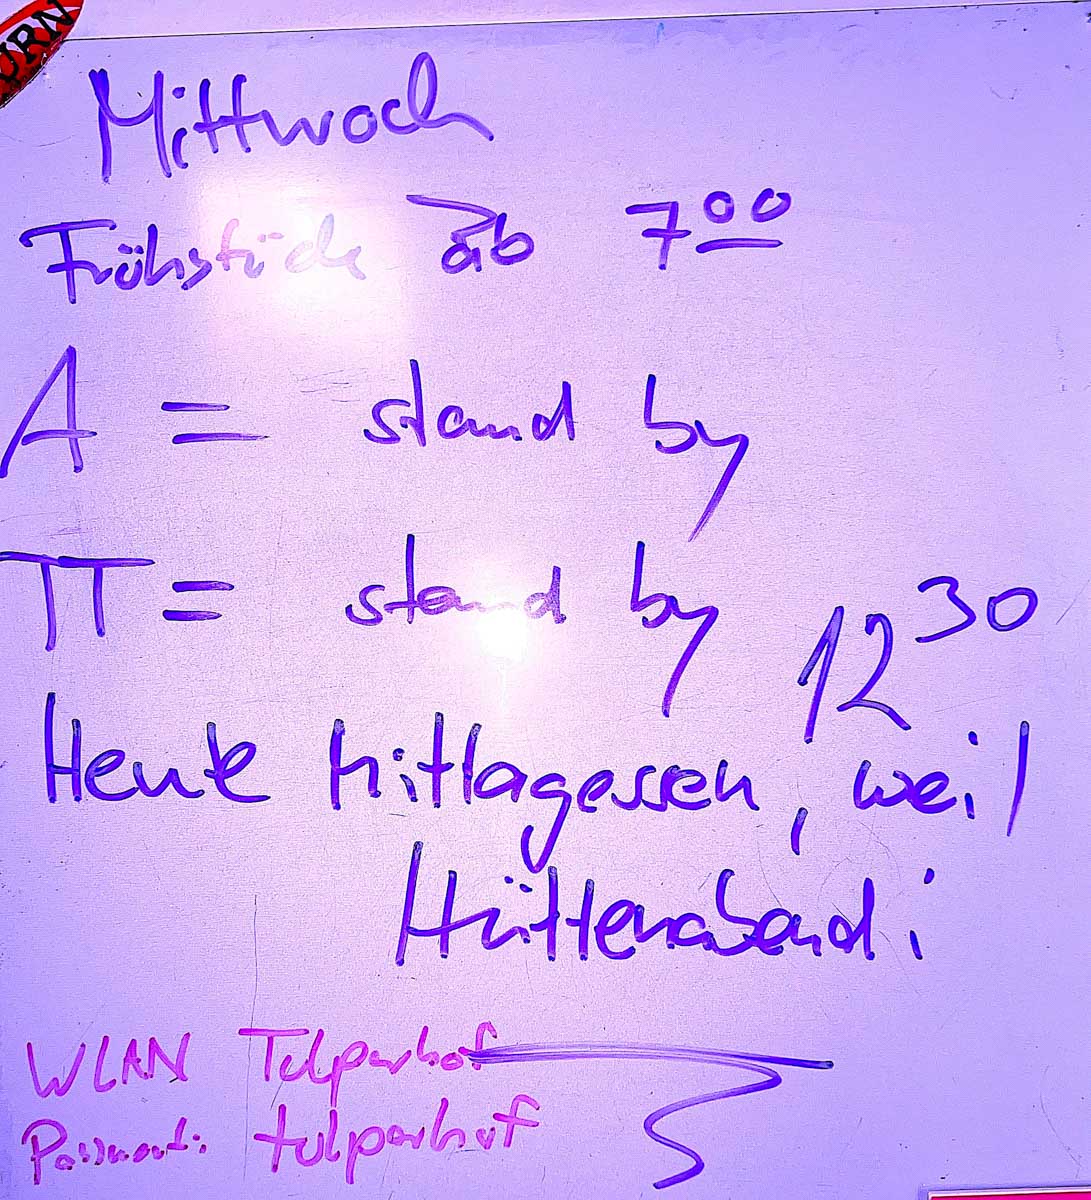 URN
Mittwoch
Frühstück ab 7⁰⁰
A = stand by
π = stand by
12³⁰
Heute Mittagessen, weil
Hüttenabend!
WLAN Tulperhof
Passwort: tulperhof